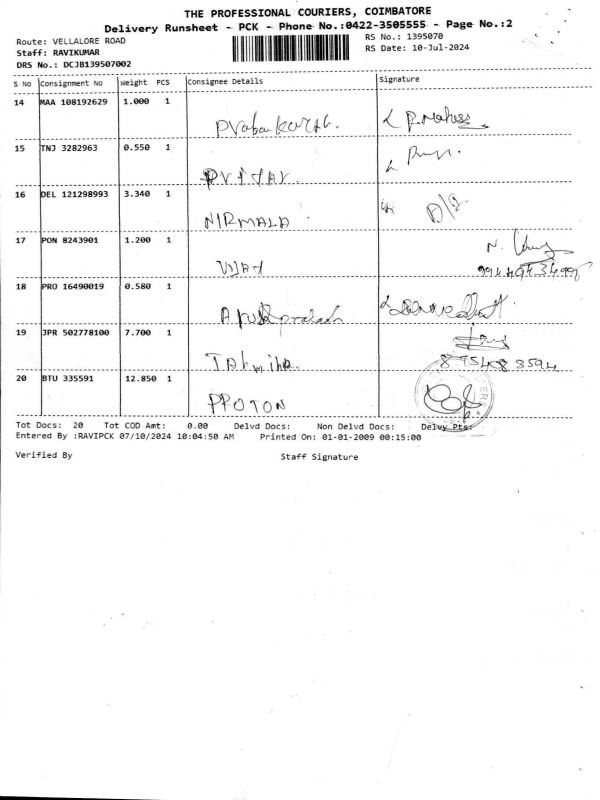 THE PROFESSIONAL COURIERS, COIMBATORE
Delivery Runsheet - PCK - Phone No.:0422-3505555 - Page No.:2
Route: VELLALORE ROAD
RS No.: 1395070
Staff: RAVIKUMAR
RS Date: 10-Jul-2024
DRS No.: DCJB139507002
S No Consignment No Weight PCS Consignee Details Signature
14 MAA 108192629 1.000 1
Prabakaran.
15 TNJ 3282963 0.550 1
16 DEL 121298993 3.340 1
NIRMALA
17 PON 8243901 1.200 1
18 PRO 16490019 0.580 1
19 JPR 502778100 7.700 1
20 BTU 335591 12.850 1
PROTON
Tot Docs: 20 Tot COD Amt: 0.00 Delvd Docs: Non Delvd Docs: Delvy Pts:
Entered By :RAVIPCK 07/10/2024 10:04:50 AM Printed On: 01-01-2009 00:15:00
Verified By Staff Signature